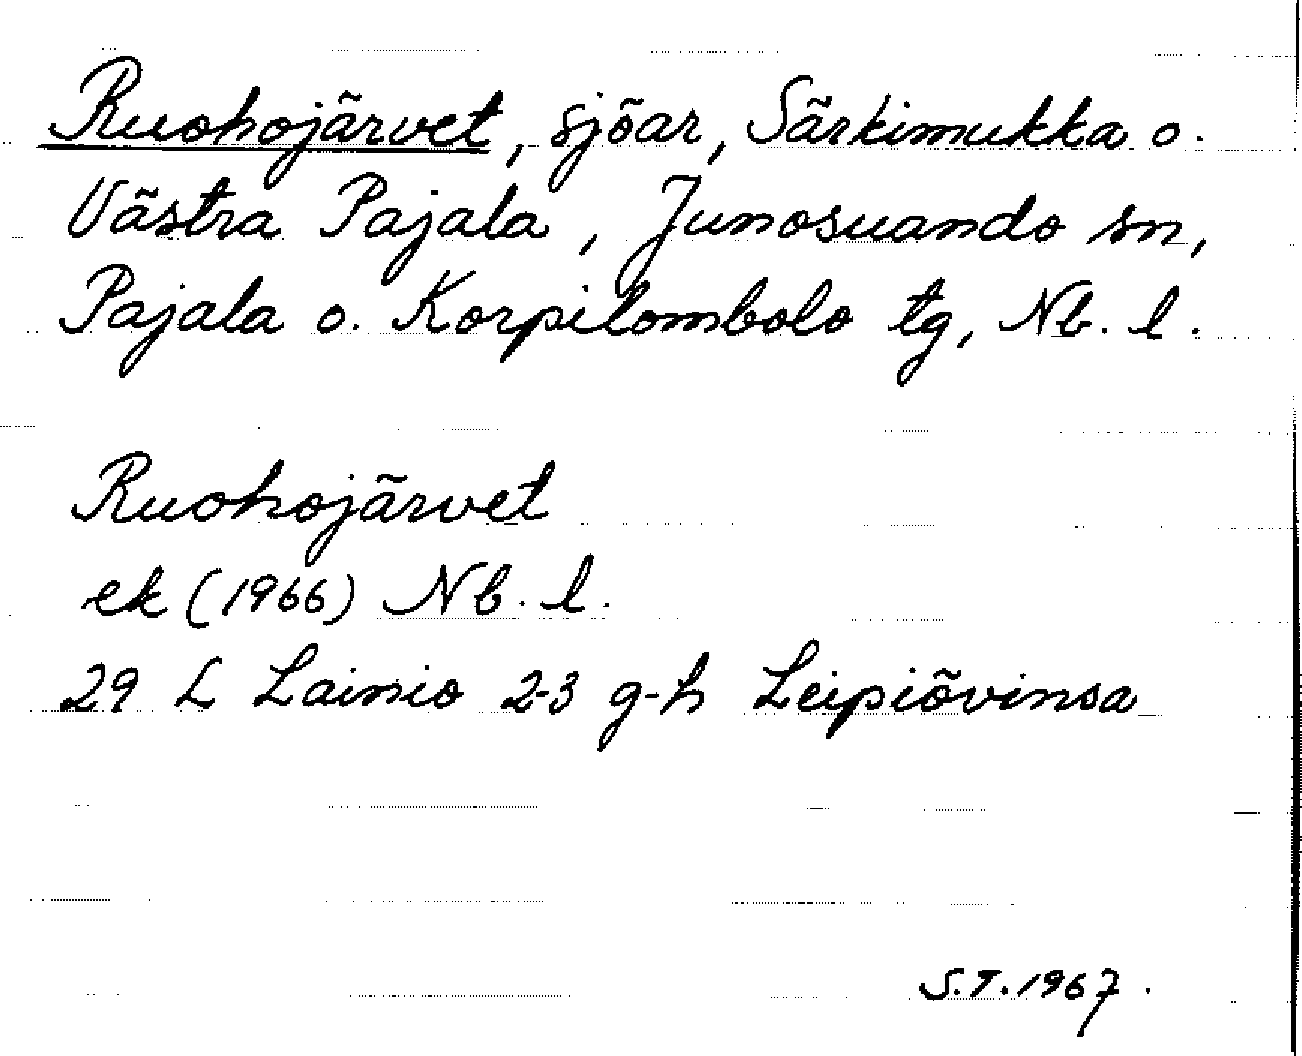 Ruohojärvet, sjöar, Särkimukka o.
Västra Pajala, Junosuando sn,
Pajala o. Korpilombolo tg, Nb. l.
Ruohojärvet
ek (1966) Nb. l.
29 L Lainio 2-3 g-h Leipiövinsa
S.T. 1967.